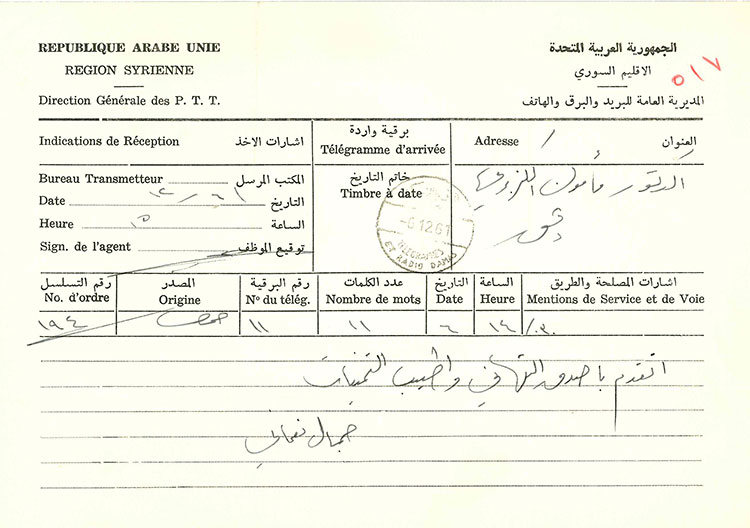 REPUBLIQUE ARABE UNIE
REGION SYRIENNE
Direction Générale des P. T. T.
الجمهورية العربية المتحدة
الاقليم السوري
المديرية العامة للبريد والبرق والهاتف
٥١٧
Indications de Réception اشارات الاخذ
برقية واردة
Télégramme d'arrivée
Adresse العنوان
الدكتور مأمون الكزبري
دمشق
Bureau Transmetteur المكتب المرسل
Date ٦/١٢ التاريخ
Heure ١٥ الساعة
Sign. de l'agent توقيع الموظف
خاتم التاريخ
Timbre à date
-6.12.61
TELEGRAMES
ET RADIO DAMAS
رقم التسلسل المصدر رقم البرقية عدد الكلمات التاريخ الساعة اشارات المصلحة والطريق
No. d'ordre Origine Nº du télég. Nombre de mots Date Heure Mentions de Service et de Voie
١٩٤ حمص ١١ ١١ ٦ ١٤/٣٠
اتقدم باصدق التهاني واطيب التمنيات
جمال نعماني